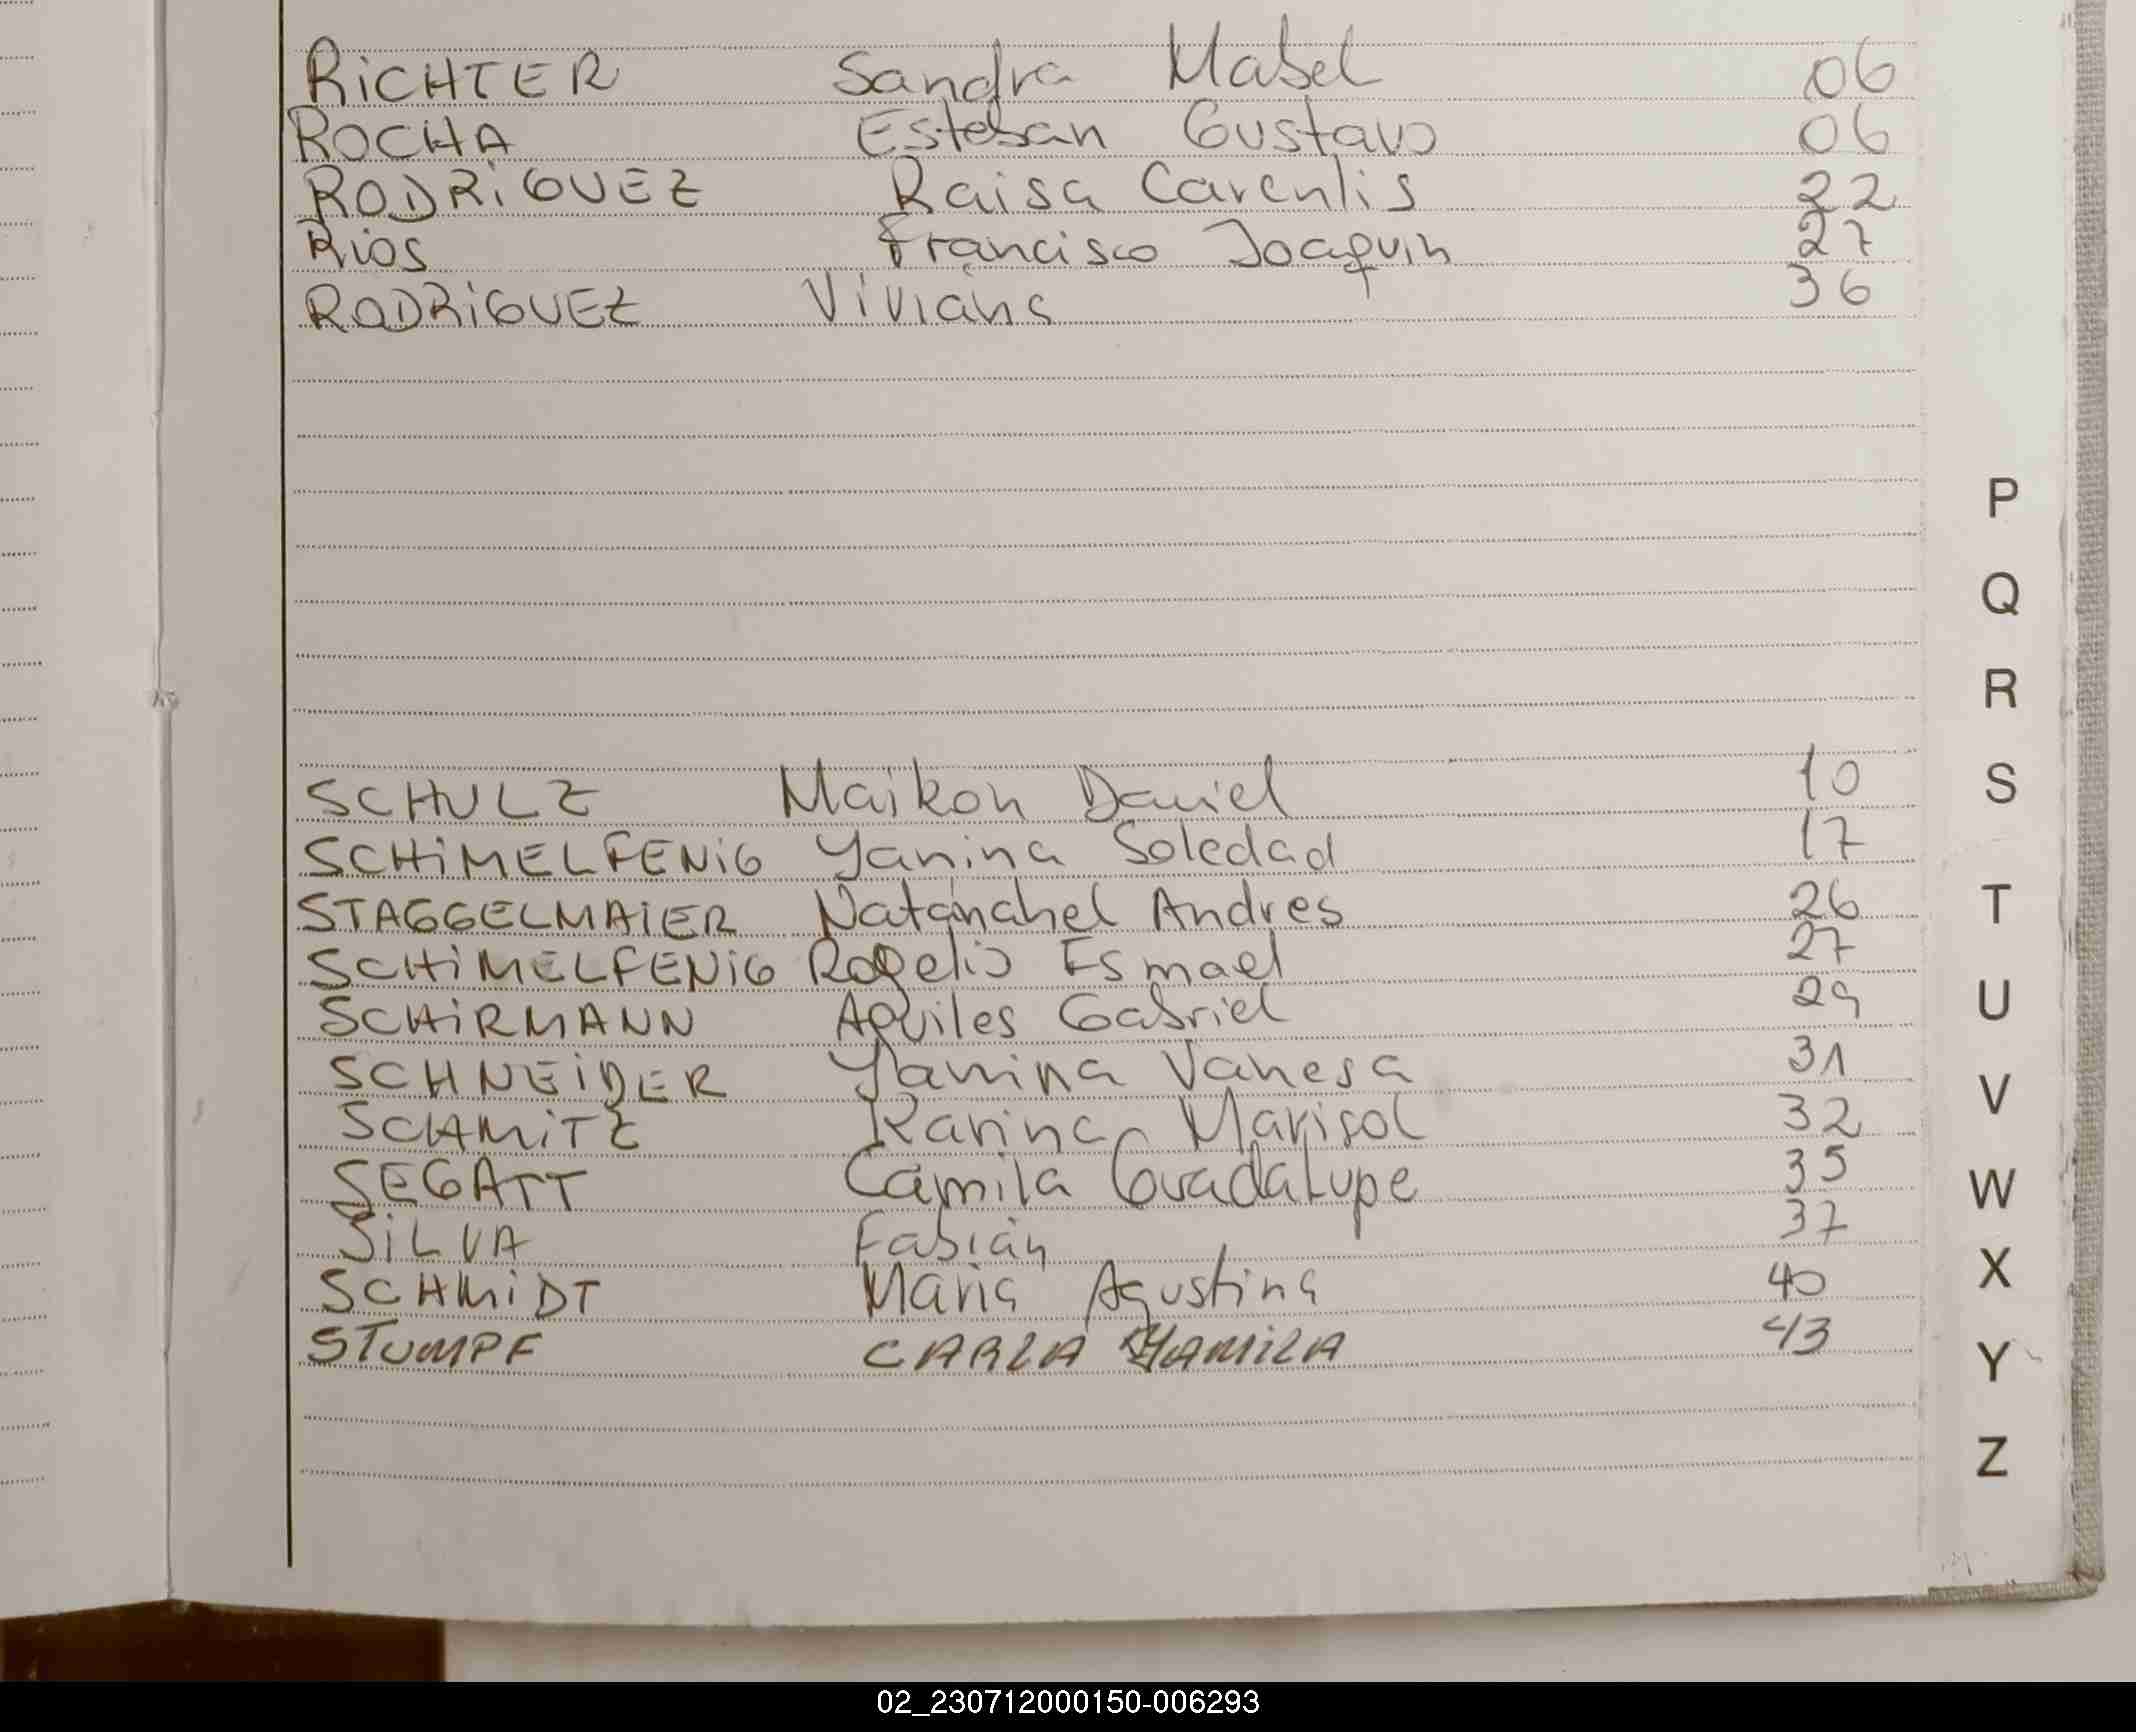 RICHTER Sandra Mabel 06
ROCHA Esteban Gustavo 06
RODRIGUEZ Raisa Carenlis 22
RIOS Francisco Joaquin 27
RODRIGUEZ Viviana 36
P
Q
R
SCHULZ Maikon Daniel 10
S
SCHIMELFENIG Yanina Soledad 17
STAGGELMAIER Natanahel Andres 26
T
SCHIMELFENIG Rogelio Esmael 27
SCHIRMANN Aquiles Gabriel 29
U
SCHNEIDER Yanina Vanesa 31
V
SCHMITZ Karina Marisol 32
SEGATT Camila Guadalupe 35
W
SILVA Fabián 37
X
SCHMIDT Maria Agustina 40
STUMPF CARLA YAMILA 43
Y
Z
02_230712000150-006293